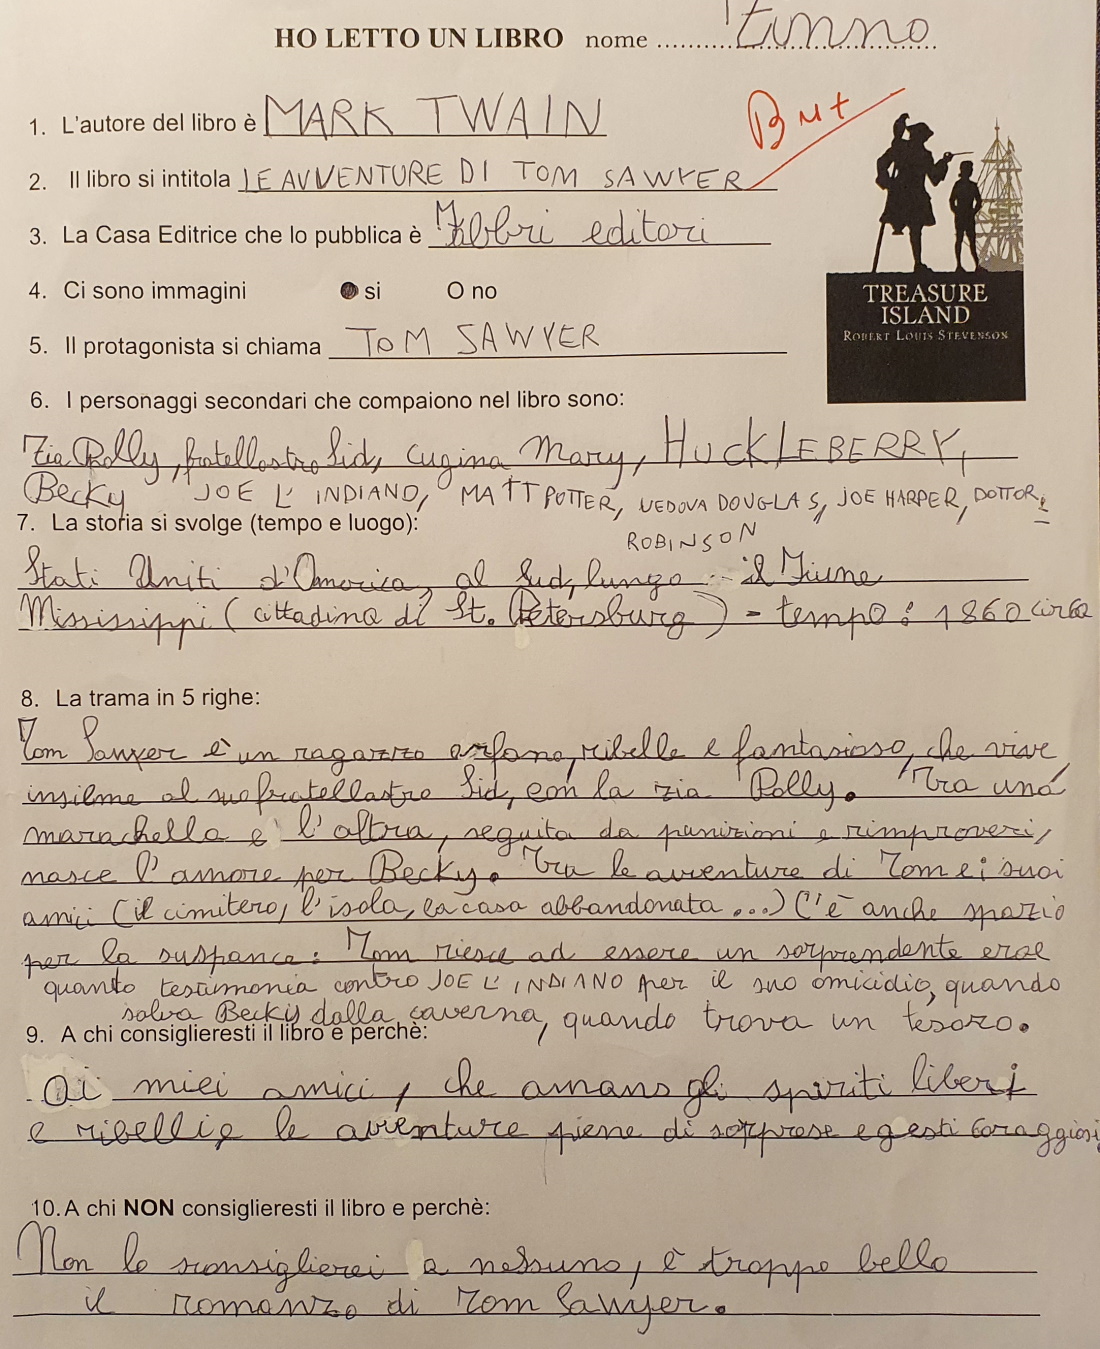 HO LETTO UN LIBRO nome ..........
1. L'autore del libro è MARK TWAIN
2. Il libro si intitola LE AVVENTURE DI TOM SAWYER
3. La Casa Editrice che lo pubblica è Fabbri editori
4. Ci sono immagini si O no
5. Il protagonista si chiama TOM SAWYER
TREASURE
ISLAND
ROBERT LOUIS STEVENSON
6. I personaggi secondari che compaiono nel libro sono:
Zia Polly, fratellastro Sid, cugina Mary, HUCKLEBERRY,
Becky JOE L'INDIANO, MATT POTTER, VEDOVA DOUGLAS, JOE HARPER, DOTTOR
ROBINSON
7. La storia si svolge (tempo e luogo):
Stati Uniti d'America, al Sud, lungo il Fiume
Mississippi (cittadina di St. Petersburg) - tempo: 1860 circa
8. La trama in 5 righe:
Tom Sawyer è un ragazzo orfano, ribelle e fantasioso, che vive
insieme al suo fratellastro Sid, con la zia Polly. Tra una
marachella e l'altra, seguita da punizioni e rimproveri,
nasce l'amore per Becky. Tra le avventure di Tom e i suoi
amici (il cimitero, l'isola, la casa abbandonata ...) C'è anche spazio
per la suspance: Tom riesce ad essere un sorprendente eroe
quanto testimonia contro JOE L'INDIANO per il suo omicidio, quando
salva Becky dalla caverna, quando trova un tesoro.
9. A chi consiglieresti il libro e perchè:
Ai miei amici, che amano gli spiriti liberi
e ribelli e le avventure piene di sorprese e gesti coraggiosi
10. A chi NON consiglieresti il libro e perchè:
Non lo sconsiglierei a nessuno, è troppo bello
il romanzo di Tom Sawyer.